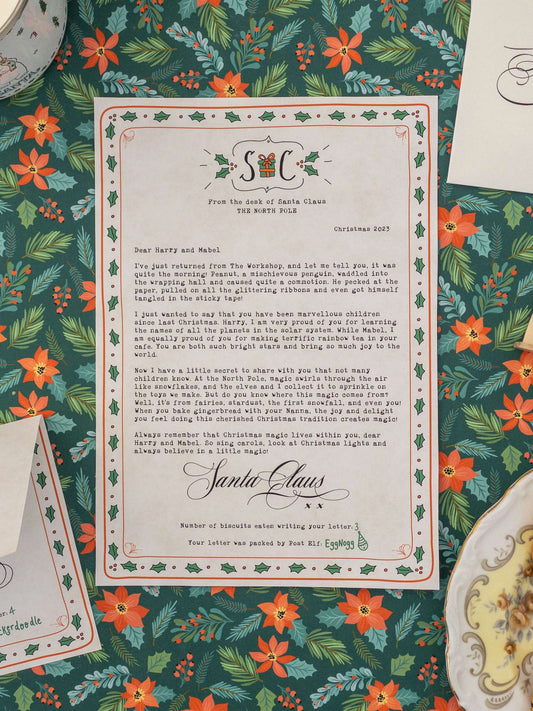 S C
From the desk of Santa Claus
THE NORTH POLE
Christmas 2023
Dear Harry and Mabel
I've just returned from The Workshop, and let me tell you, it was
quite the morning! Peanut, a mischievous penguin, waddled into
the wrapping hall and caused quite a commotion. He pecked at the
paper, pulled on all the glittering ribbons and even got himself
tangled in the sticky tape!
I just wanted to say that you have been marvellous children
since last Christmas. Harry, I am very proud of you for learning
the names of all the planets in the solar system. While Mabel, I
am equally proud of you for making terrific rainbow tea in your
cafe. You are both such bright stars and bring so much joy to the
world.
Now I have a little secret to share with you that not many
children know. At the North Pole, magic swirls through the air
like snowflakes, and the elves and I collect it to sprinkle on
the toys we make. But do you know where this magic comes from?
Well, it's from fairies, stardust, the first snowfall, and even you!
When you bake gingerbread with your Nanna, the joy and delight
you feel doing this cherished Christmas tradition creates magic!
Always remember that Christmas magic lives within you, dear
Harry and Mabel. So sing carols, look at Christmas lights and
always believe in a little magic!
Santa Claus
x x
Number of biscuits eaten writing your letter: 3
Your letter was packed by Post Elf: EggNogg
4